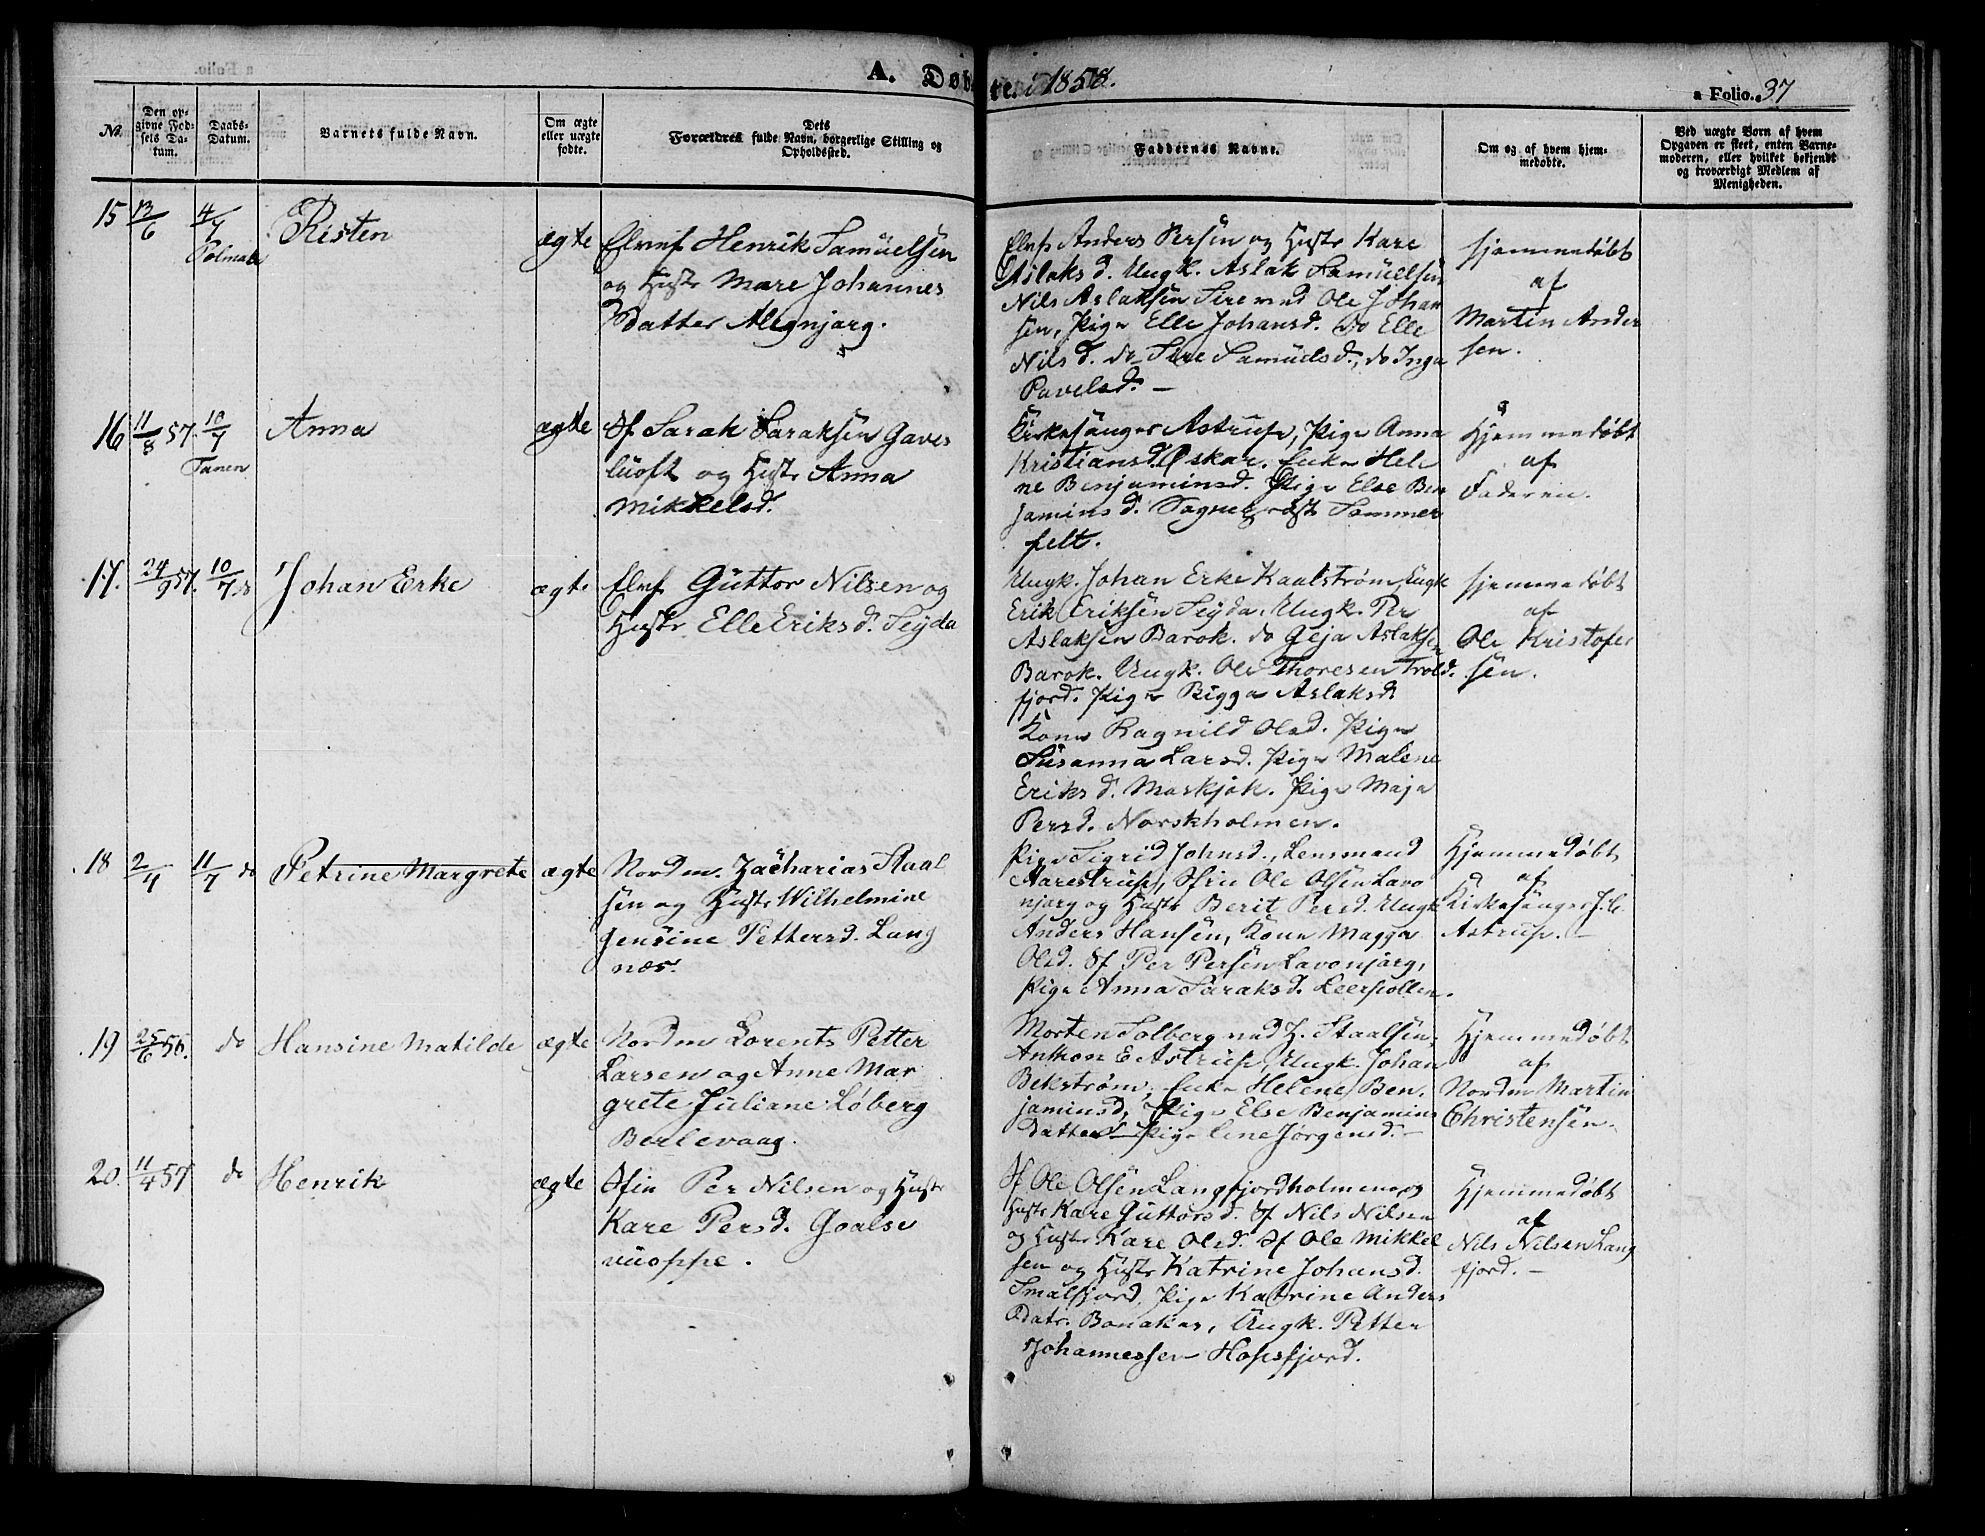 A. Døbte i 1858.
a Folio. 37
No.
Den op-
givne Fød-
sels Da-
tum.
Daabs-
Datum.
Barnets fulde Navn.
Om ægte
eller uægte
fødte.
Dets
Forældres fulde Navn, borgerlige Stilling og
Opholdssted.
Faddernes Navne.
Om og af hvem hjem-
medøbte.
Ved uægte Børn af hvem
Opgaven er skeet, enten Barne-
moderen, eller hvilket bekjendt
og troværdigt Medlem af
Menigheden.
15 13/6 4/7 Risten ægte
Polmak
Elvef Henrik Samuelsen
og Hustr Mare Johannes
Datter Alegnjarg.
Elvf Anders Persen og Hustr Kare
Aslaks d. Ungk. Aslak Samuelsen
Nils Aslaksen Sirema Ole Johan
sen, Pige Elle Johansd. do Elle
Nils d. do Sire Samuels d., do Inga
Pavelsd. —
Hjemmedøbt
af
Martin Ander
sen.
16 11/8 57. 10/7 Anna ægte
Tanen
Sf Sarak Saraksen Gaves
luoft og Hustr Anna
Mikkelsd.
Kirkesanger Astrup, Pige Anna
Kristiansd. Oskar. Enke Hele
ne Benjaminsd. Pige Else Ben
jamins d. Sognepræst Sommer
felt.
Hjemmedøbt
af
Faderen.
17. 24/9 57. 10/7 do Johan Erke ægte
Elvf Guttor Nilsen og
Hustr. Elle Eriks d. Seyda
Ungk. Johan Erke Kaalstrøm, Ungk
Erik Eriksen Seyda, Ungk. Per
Aslaksen Barok. do Geja Aslaksen
Barok. Ungk. Ole Thoresen Trold
fjord. Pige Bigga Aslaksd.
Kone Ragnild Olsd. Pige
Susanna Larsd. Pige Malene
Eriks d. Maskjok. Pige Maja
Persd. Norskholmen.
Hjemmedøbt
af
Ole Kristofer
sen.
18 2/4 11/7 do Petrine Margrete ægte
Nordm. Zacharias Staal
sen og Hustr Wilhelmine
Jensine Pettersd. Lang
næs.
Pige Sigrid Johnsd., Lensmand
Aarestrup, Sfin Ole Olsen Lavo
njarg og Hustr Berit Persd. Ungk
Anders Hansen, Kone Magga
Olsd. Sf Per Persen Lavonjarg,
Pige Anna Saraksd. Leerpollen.
Hjemmedøbt
af
Kirkesanger J. C.
Astrup. —
19 25/6 56. do Hansine Matilde ægte
Nordm Lorents Petter
Larsen og Anne Mar
grete Juliane Løberg
Berlevaag.
Morten Solberg ved Z. Staalsen,
Anthon E Astrup, Ungk. Johan
Bekstrøm, Enke Helene Ben.
jaminsd, Pige Else Benjamins
Datter Pige Line Jørgensd. —
Hjemmedøbt
af
Nordm Martin
Christensen.
20. 11/4 57 do Henrik ægte
Sfin Per Nilsen og Hustr
Kare Persd. Goalse
vuoppe.
Sf Ole Olsen Langfjordholmene og
Hustr Kare Guttorsd. Sf Nils Nilsen
og Hustr Kare Olsd. Sf Ole Mikkel
sen og Hustr Katrine Johansd.
Smalfjord. Pige Katrine Anders
Datr. Bonakas, Ungk. Petter
Johannessen Hopsfjord.
Hjemmedøbt
af
Nils Nilsen Lang
fjord. —